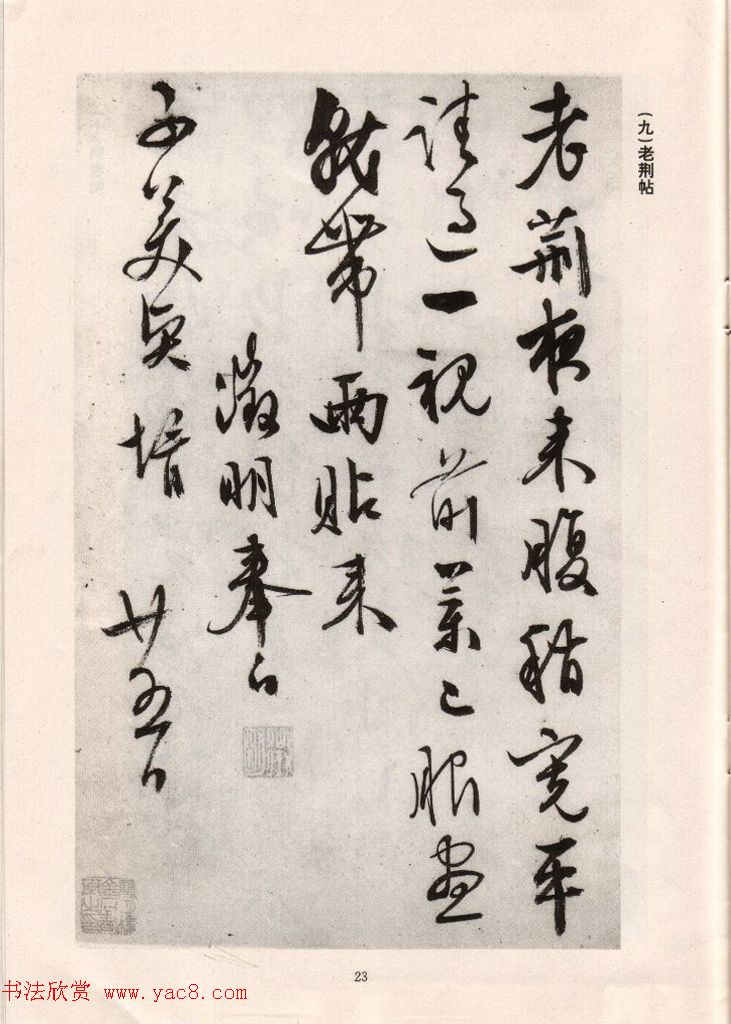 (九)老荆帖
老荆夜来腹稍宽平
请过一视前药已服尽
就带两贴来
徵明奉白
子美贤壻
廿五日
23
书法欣赏 www.yac8.com